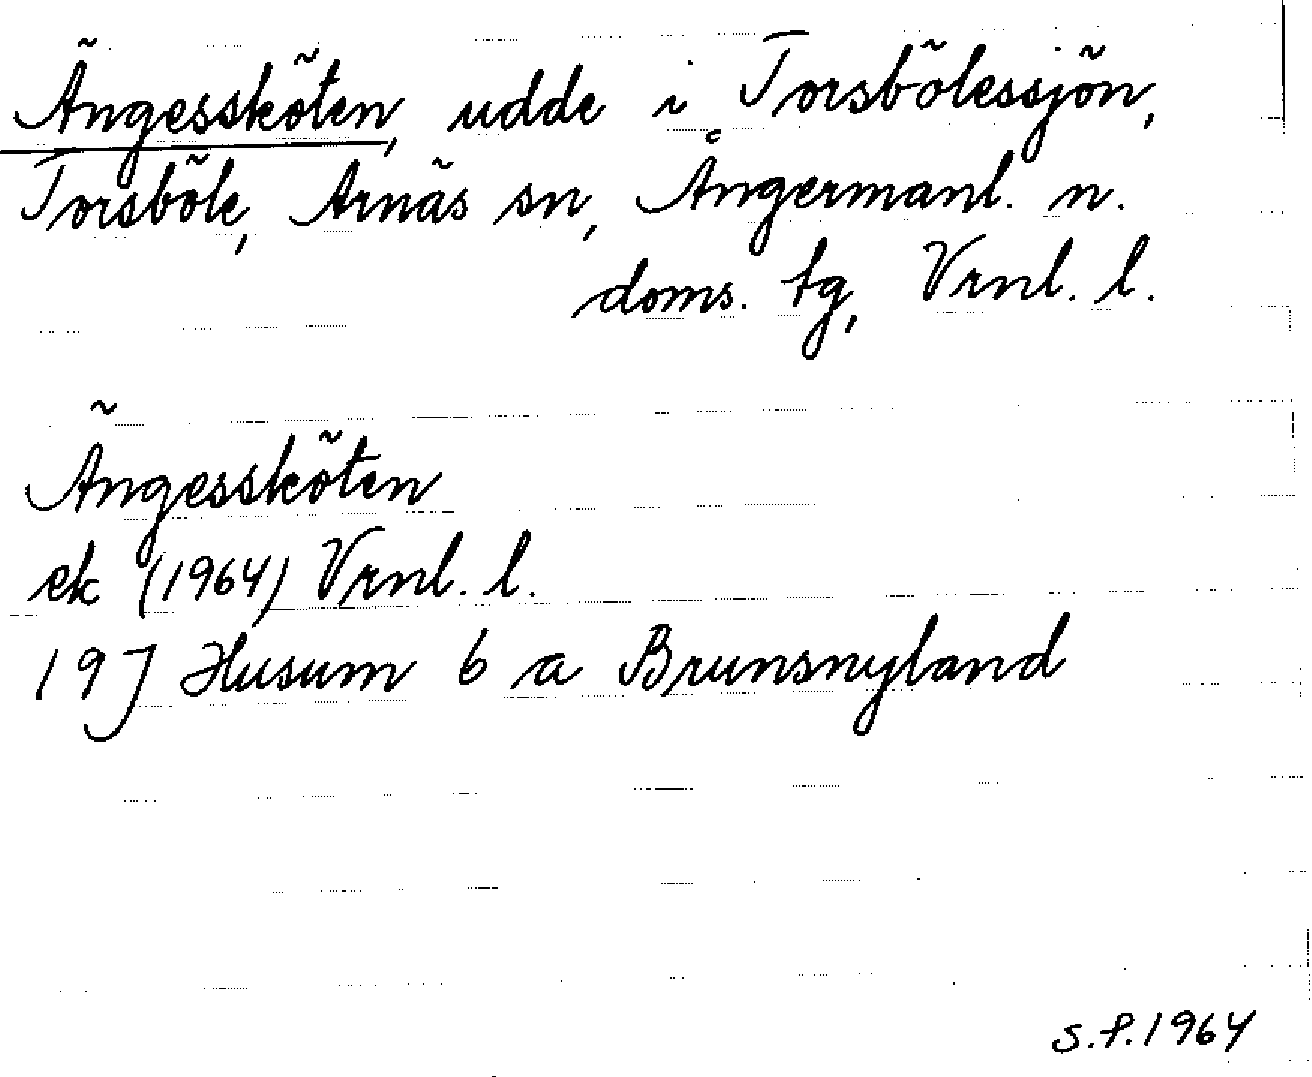 Ängessköten, udde i Torsbölessjön,
Torsböle, Arnäs sn, Ångermanl. n.
doms. tg, Vrnl. l.
Ängessköten
ek (1964) Vrnl. l.
19J Husum 6 a Brunsnyland
S.P. 1964